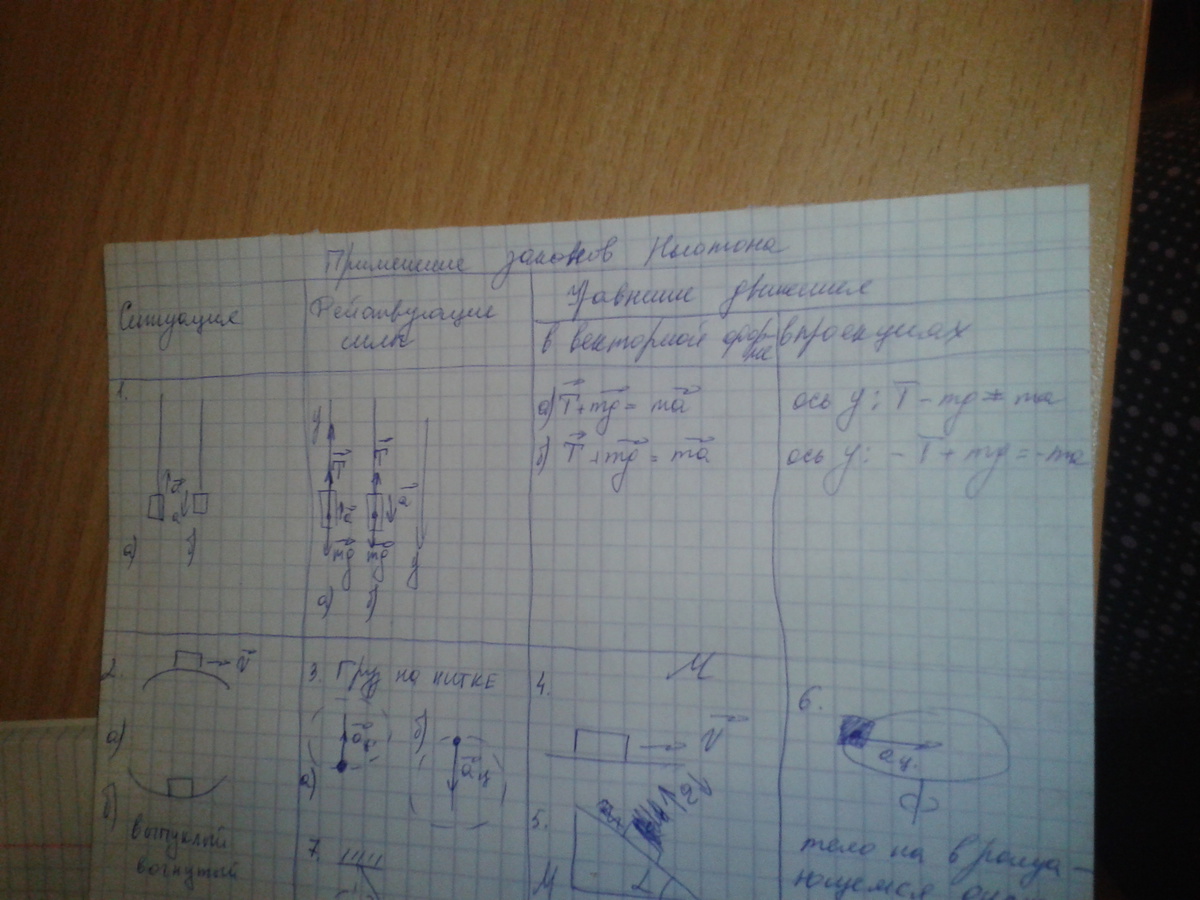 Применение законов Ньютона
Ситуация
Действующие силы
Уравнение движения
в векторной форме
в проекциях
1.
а)
б)
y
T
a
mg
а)
T
a
mg
б)
y
а) T + mg = ma
б) T + mg = ma
ось y: T - mg = ma
ось y: - T + mg = -ma
2.
V
а)
б)
выпуклый
вогнутый
3. Груз на нитке
а)
б)
aц
4.
M
V
5.
M
α
6.
aц.
тело на вращա-
ющемся
7